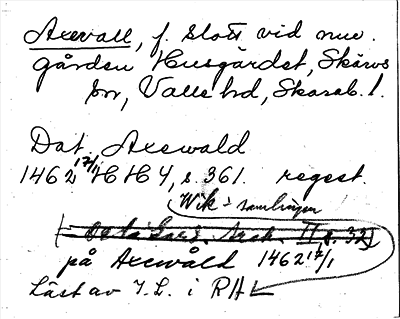 Axevall, f. slott vid nuv.
gården Husgärdet, Skärvs
sn, Valle hd, Skarab. l.
Dat. Axewald
1462 17/1 HH 4, s. 361. regest.
Wik's samlingen
II, s. 32
på Axewåld 1462 17/1
Läst av I.L. i RA